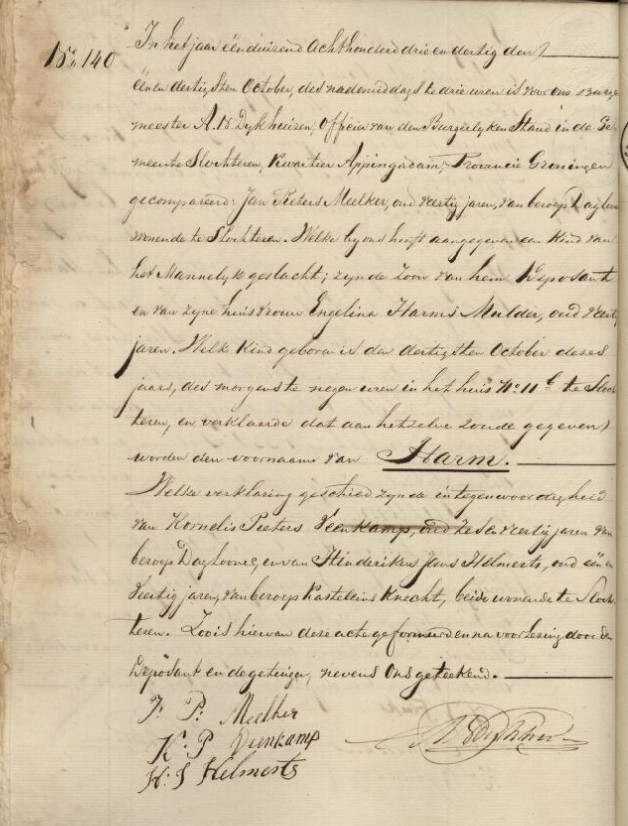 No. 140
In het jaar één duizend acht honderd drie en dertig den
één en dertigsten October, des nademiddags te drie uren is voor ons Burge
meester A. B. Dijkhuizen, Officier van den Burgerlyken Stand in de Ge
meente Slochteren, Kwartier Appingadam, Provincie Groningen
gecompareerd: Jan Pieters Meelker, oud veertig jaren, van beroep Dagloon
wonende te Slochteren. Welke by ons heeft aangegeven een Kind van
het Mannelyk geslacht; zynde Zoon van hem Deposant
en van zyne huisvrouw Engelina Harms Mulder, oud veertig
jaren. Welke Kind geboren is den dertigsten October dezes
jaars, des morgens te negen uren in het huis No 11 te Sloch
teren, en verklaarde dat aan hetzelve zoude gegeven
worden den voornaam van Harm.
Welke verklaring geschied zynde in tegenwoordigheid
van Kornelis Pieters Veenkamp, oud zes en veertig jaren van
beroep Daglooner, en van Hinderikus Jans Helmerts, oud één en
veertig jaren, van beroep Kasteleins Knecht, beide wonende te Sloch
teren. Zoo is hiervan deze acte geformeerd en na voorlezing door de
Deposant en de getuigen, nevens ons geteekend.
J: P: Meelker
K: P Veenkamp
H: J Helmerts
A B Dijkhuizen